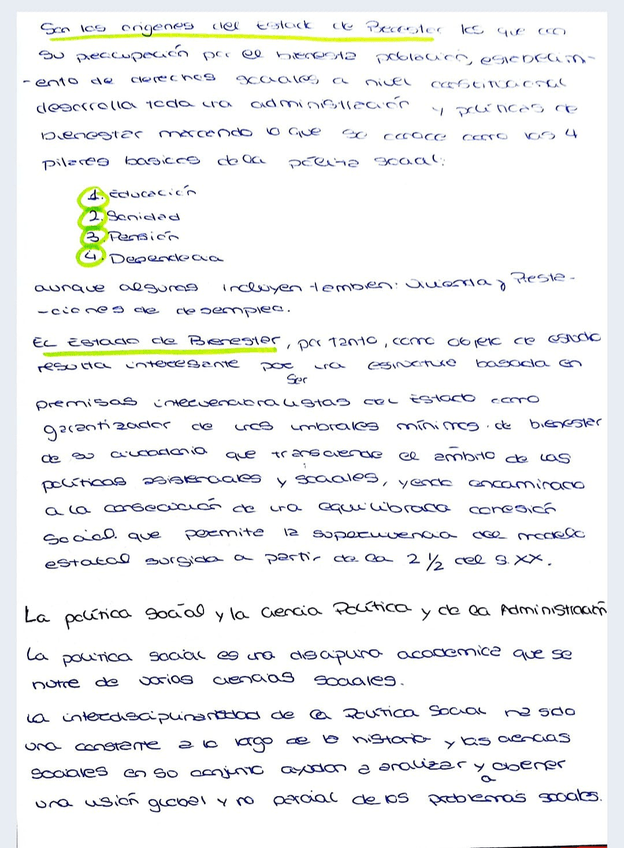 Son los origenes del Estado de Bienestar los que con
su preocupación por el bienestar población, establecim-
-iento de derechos sociales a nivel constitucional
desarrolla toda una administración y políticas de
bienestar marcando lo que se conoce como los 4
pilares basicos de la política social:
1. Educación
2. Sanidad
3. Pensión
4. Dependencia
aunque algunos incluyen también: vivienda y Presta-
-ciones de desempleo.
EL Estado de Bienestar, por tanto, como objeto de estudio
resulta interesante por ser una estructura basada en
premisas intervencionalistas del Estado como
garantizador de unos umbrales mínimos de bienestar
de su ciudadania que transciende el ámbito de las
políticas asistenciales y sociales, yendo encaminado
a la consecución de una equilibrada cohesión
Social que permite la supervivencia del modelo
estatal surgido a partir de la 2 1/2 del S.XX.
La política social y la Ciencia Política y de la Administración
La política social es una disciplina academica que se
nutre de varias ciencias sociales.
La interdisciplinariedad de la Política Social ha sido
una constante a lo largo de la historia y las ciencias
sociales en su conjunto ayudan a analizar y a obtener
una visión global y no parcial de los problemas sociales.